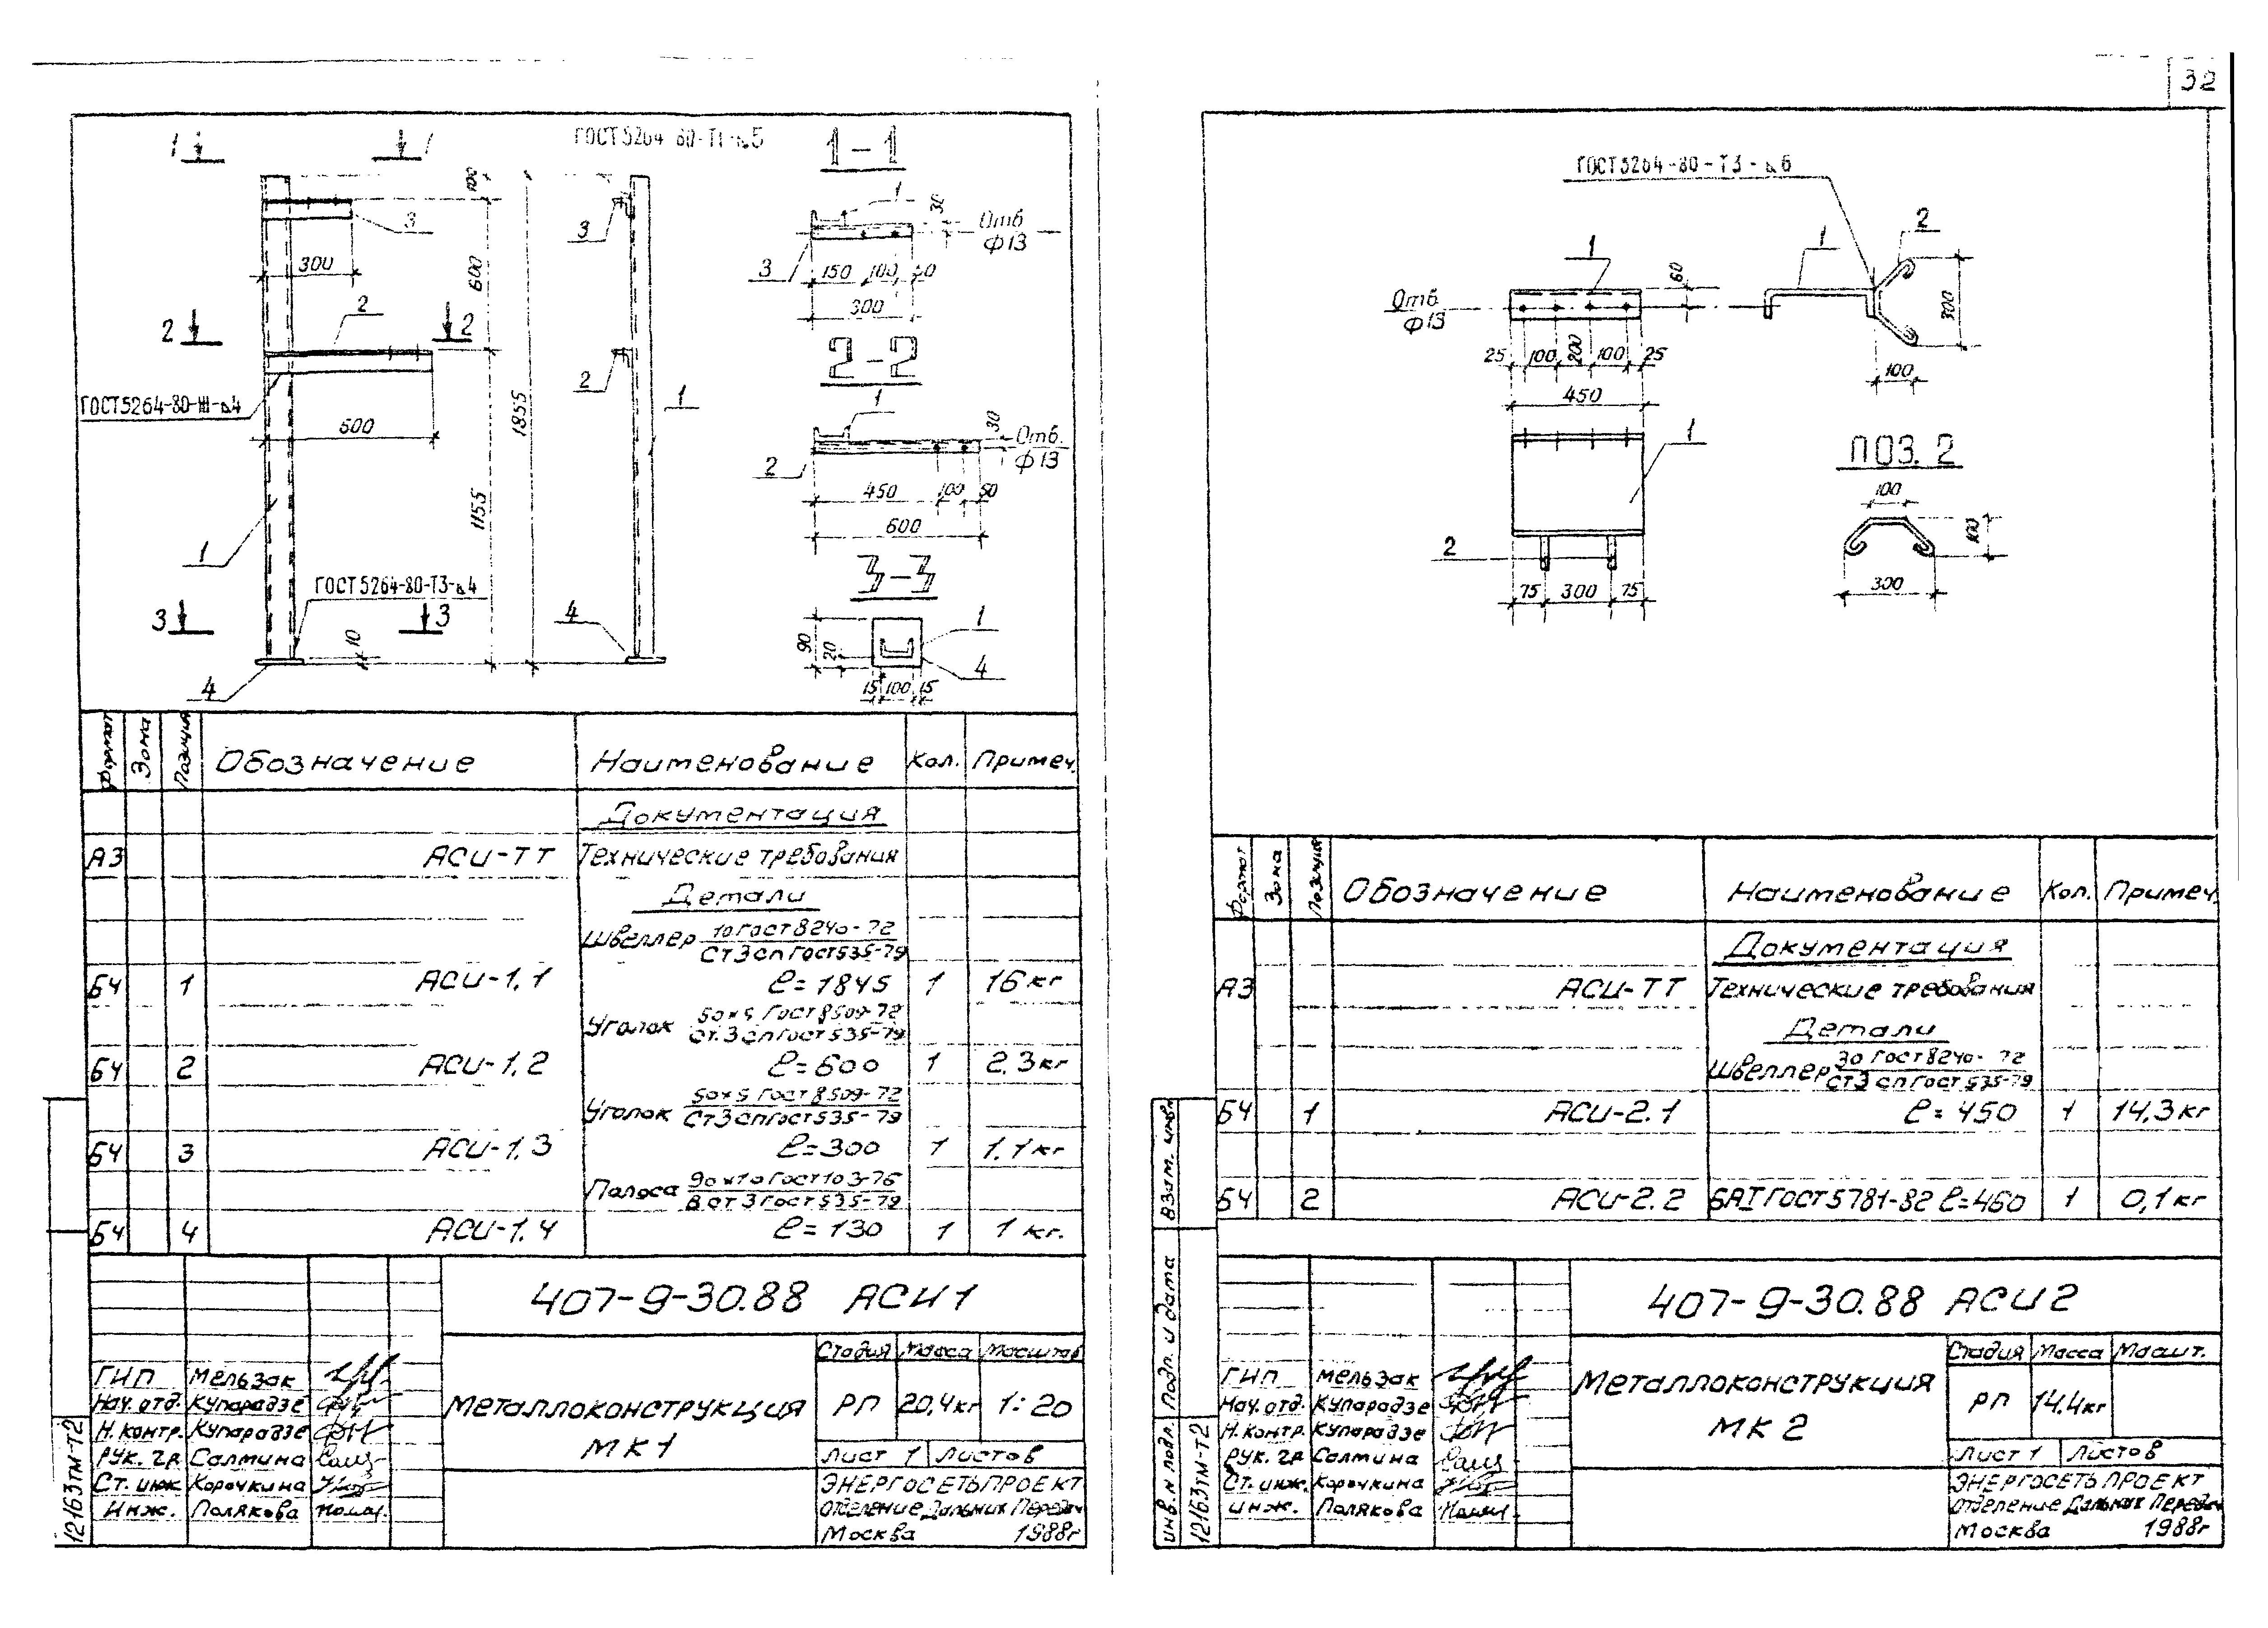 32
ГОСТ 5264-80-Т1-⊾5
1-1
1
1
3
300
100
600
2
2
2
ГОСТ 5264-80-Н1-⊾4
600
1155
1855
1
ГОСТ 5264-80-Т3-⊾4
3
3
10
4
3
2
1
4
1
30
Отб
Ф13
3
150
100
50
300
2-2
1
30
Отб.
Ф13
2
450
100
50
600
3-3
90
20
1
4
15
100
15
Формат
Зона
Позиция
Обозначение
Наименование
Кол.
Примеч.
Документация
А3
АСИ-ТТ
Технические требования
Детали
Швеллер 10 ГОСТ 8240-72
Ст3сп ГОСТ 535-79
БЧ 1 АСИ-1.1 ℓ=1845 1 16 кг
Уголок 50×5 ГОСТ 8509-72
Ст.3сп ГОСТ 535-79
БЧ 2 АСИ-1.2 ℓ=600 1 2.3 кг
Уголок 50×5 ГОСТ 8509-72
Ст3сп ГОСТ 535-79
БЧ 3 АСИ-1.3 ℓ=300 1 1.1 кг
Полоса 90×10 ГОСТ 103-76
Вст3 ГОСТ 535-79
БЧ 4 АСИ-1.4 ℓ=130 1 1 кг.
407-9-30.88 АСИ1
Стадия Масса Масштаб
ГИП Мельзак
Нач. отд. Купарадзе
Н. контр. Купарадзе
Рук. гр. Салмина
Ст. инж Корочкина
Инж. Полякова
Металлоконструкция
МК1
РП 20,4кг 1:20
Лист 1 Листов
ЭНЕРГОСЕТЬПРОЕКТ
Отделение Дальних Передач
Москва 1988г
12163тм-т2
ГОСТ 5264-80-Т3-⊾6
1
60
Отб.
Ф13
25
100
200
100
25
450
1
2
300
100
1
2
75
300
75
ПОЗ. 2
100
100
300
Формат
Зона
Позиция
Обозначение
Наименование
Кол.
Примеч.
Документация
А3
АСИ-ТТ
Технические требования
Детали
Швеллер 30 ГОСТ 8240-72
Ст3сп ГОСТ 535-79
БЧ 1 АСИ-2.1 ℓ=450 1 14,3 кг
БЧ 2 АСИ-2.2 6АI ГОСТ 5781-82 ℓ=460 1 0,1 кг
407-9-30.88 АСИ2
Стадия Масса Масшт.
ГИП Мельзак
Нач. отд. Купарадзе
Н. контр. Купарадзе
Рук. гр Салмина
Ст. инж. Корочкина
инж. Полякова
Металлоконструкция
МК2
РП 14.4кг
Лист 1 Листов
ЭНЕРГОСЕТЬПРОЕКТ
Отделение Дальних Передач
Москва 1988г
Взам. инв.
Подп. и дата
инв. н подл.
12163тм-т2